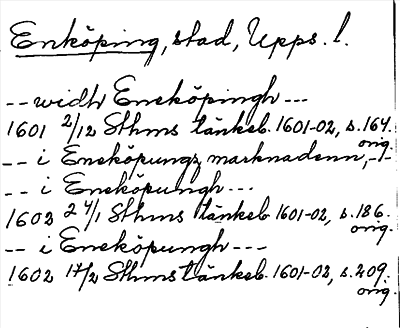 Enköping, stad, Upps. l.
-- widh Eneköpingh ---
1601 2/12 Sthms tänkeb. 1601-02, s. 164.
orig.
-- i Eneköpungz marknadenn, --
-- i Eneköpungh ---
1602 24/1 Sthms tänkeb 1601-02, s. 186.
orig.
-- i Eneköpungh ---
1602 17/2 Sthms tänkeb. 1601-02, s. 209.
orig.